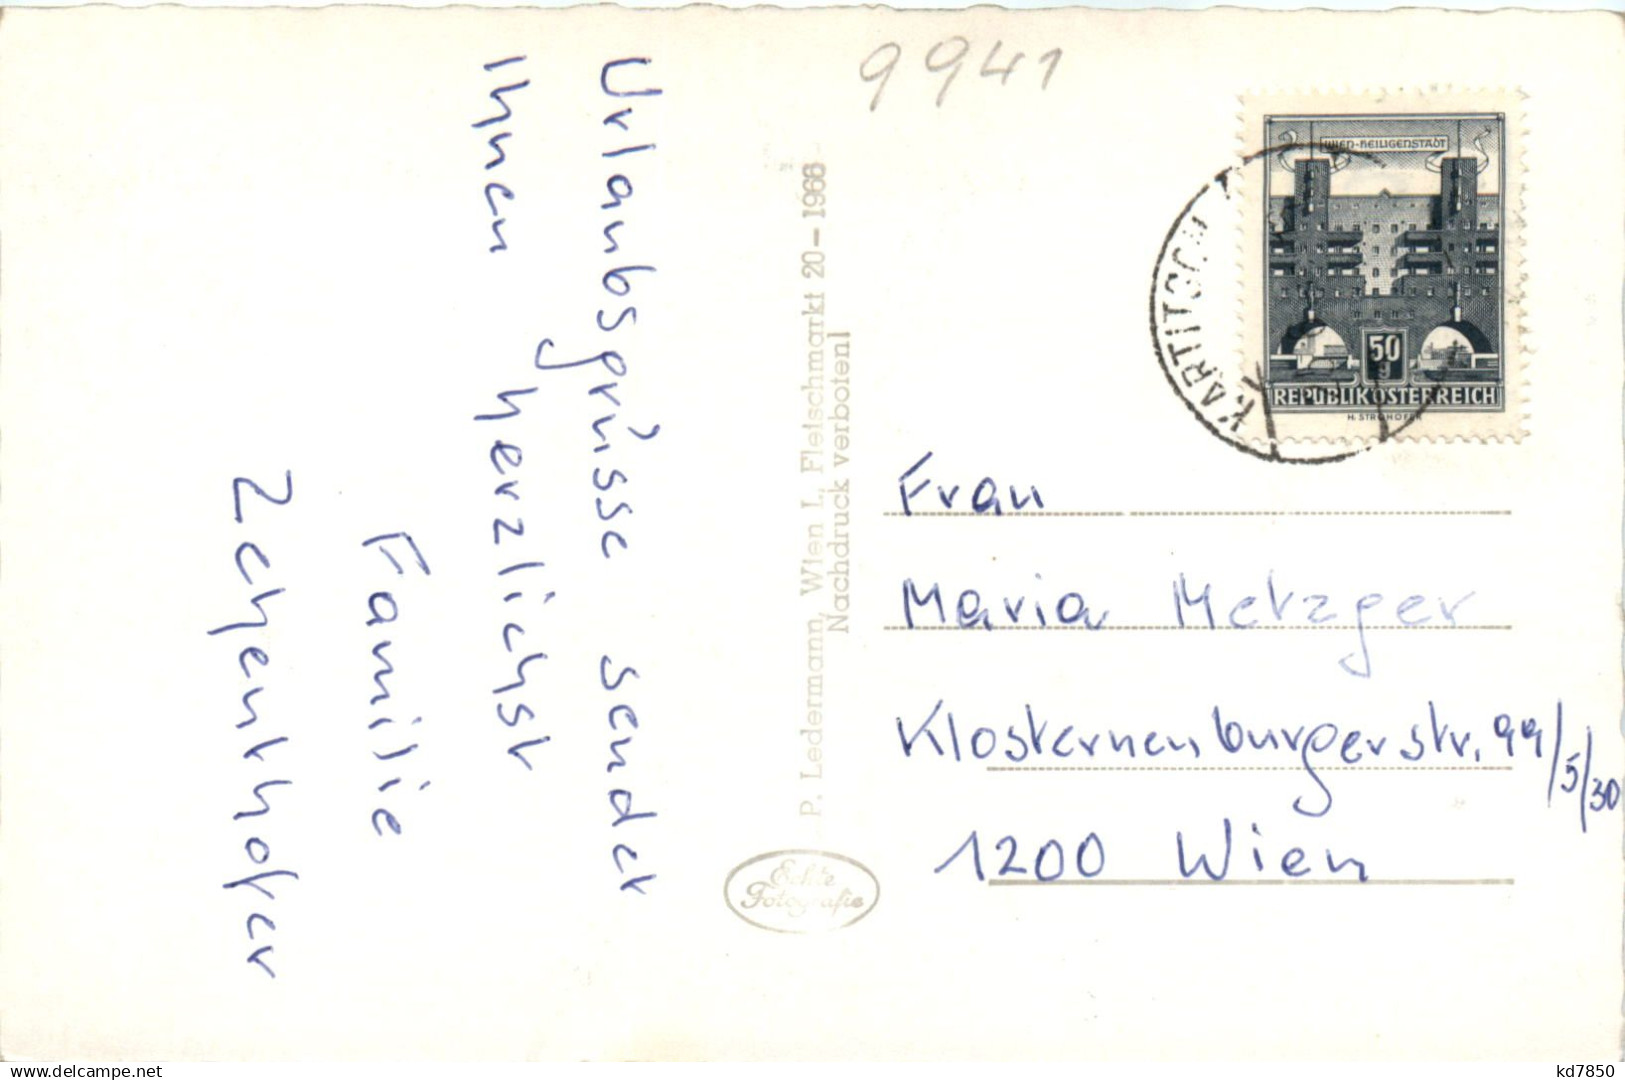 Urlaubsgrüsse sendet
Ihnen herzlichst
Familie
Zehenthofer
P. Ledermann, Wien I., Fleischmarkt 20 – 1968
Nachdruck verboten!
Echte
Fotografie
9941
WIEN-HEILIGENSTADT
50
g
REPUBLIK ÖSTERREICH
H. STROHOFER
KARTITSCH
Frau
Maria Metzger
Klosterneuburgerstr. 99/5/30
1200 Wien
delcampe.net
kd7850